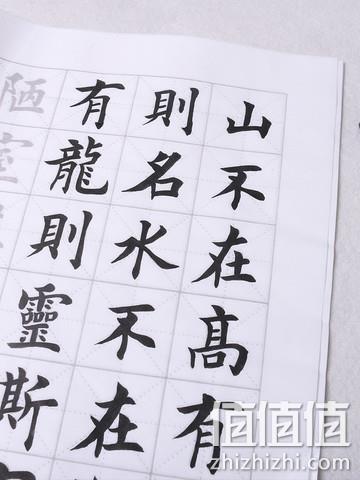 山不在高有
則名水不在
有龍則靈斯
陋室
值值值
zhizhizhi.com